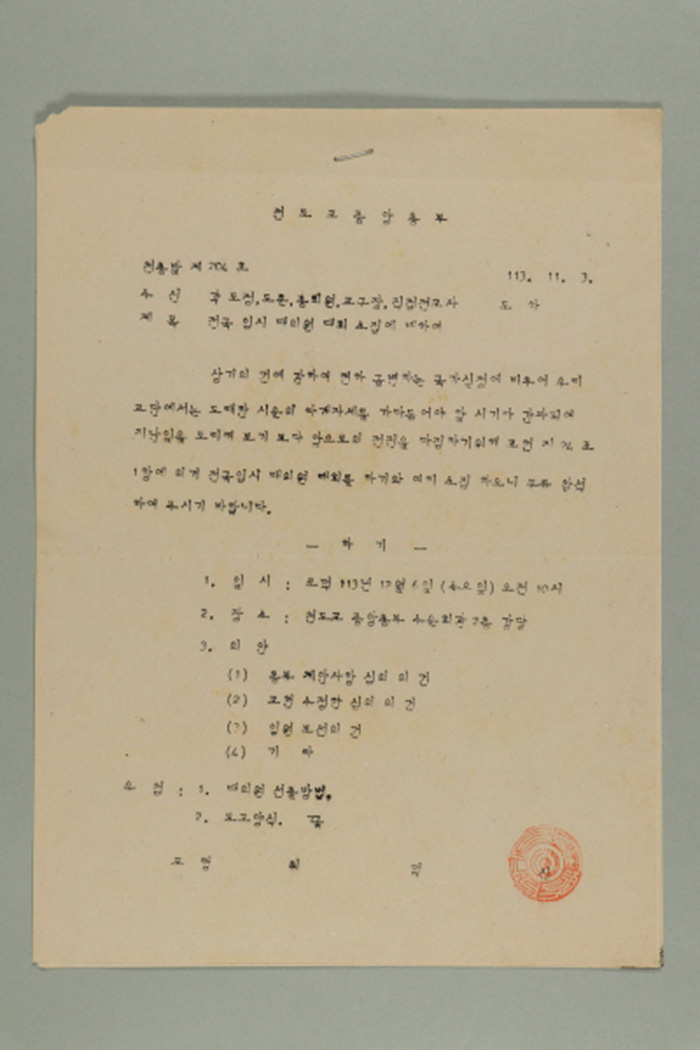 천도교중앙총부
천총발 제 704 호
113. 11. 3.
수 신 각 도정, 도훈, 종의원, 교구장, 직접전교사 도 하
제 목 전국 임시 대의원 대회 소집에 대하여
상기의 건에 관하여 현하 급변하는 국가실정에 비추어 우리
교단에서는 도래한 시운의 자세를 가다듬어야 할 시기라
지난일을 도리켜 보기 보다 앞으로의 전진을 다짐하기위해 교헌 제 조
1항에 의거 전국임시 대의원 대회를 하기와 여히 소집 하오니 참석
하여 주시기 바랍니다.
— 하 기 —
1. 일 시 : 포덕 113년 12월 6일 (수요일) 오전 10시
2. 장 소 : 천도교 중앙총부 수운회관 2층 강당
3. 의 안
(1) 총부 제안사항 심의 의 건
(2) 교헌 수정안 심의 의 건
(3) 임원 보선의 건
(4) 기 타
우 첨 : 1. 대의원 선출방법.
2. 보고양식. 끝
교 령 최